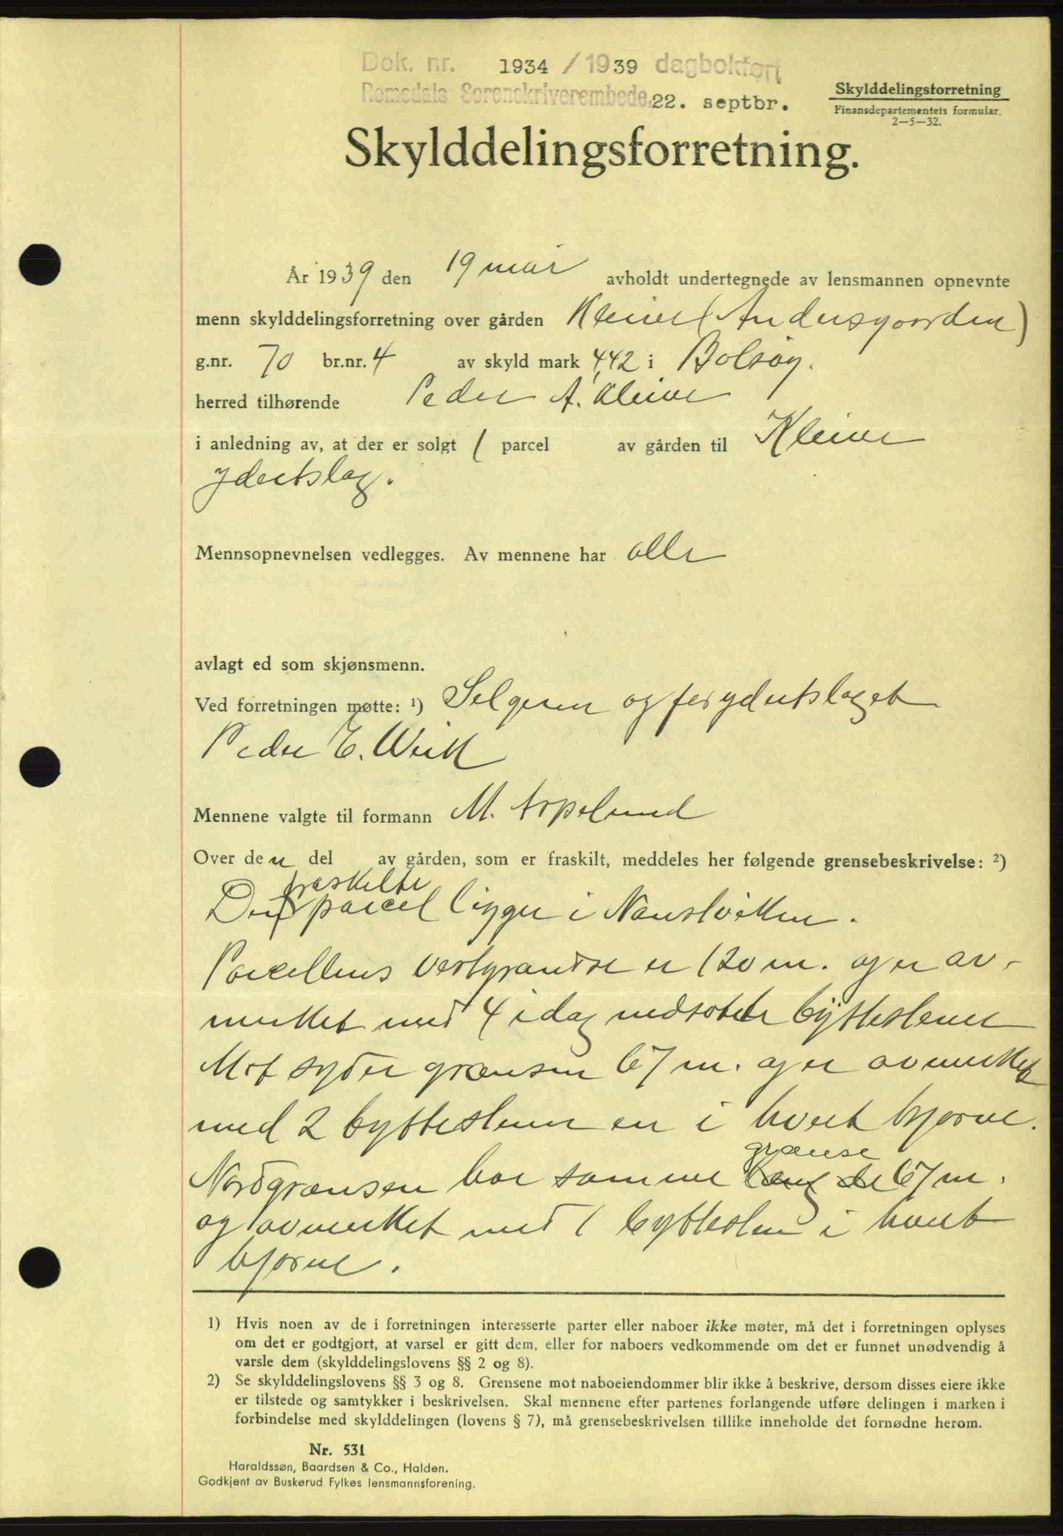 Dok. nr. 1934 / 1939 dagbokført
Romsdals Sorenskriverembede 22. septbr.
Skylddelingsforretning
Finansdepartementets formular.
2—5—32.
Skylddelingsforretning.
År 1939 den 19 mai avholdt undertegnede av lensmannen opnevnte
menn skylddelingsforretning over gården Kleive (Andersgaarden)
g.nr. 70 br.nr. 4 av skyld mark 4,42 i Bolsøy.
herred tilhørende Peder A. Kleive
i anledning av, at der er solgt 1 parcel av gården til Kleive
ydertslag.
Mennsopnevnelsen vedlegges. Av mennene har alle
avlagt ed som skjønsmenn.
Ved forretningen møtte: ¹) Selgeren og for ydertslaget
Peder E.
Mennene valgte til formann M.
Over den del av gården, som er fraskilt, meddeles her følgende grensebeskrivelse: ²)
fraskilte
Den parcel ligger i
Parcellens vestgrandse er 120 m. og er av-
merket med 4 idag nedsatte byttestener
Mot syder grænsen 67 m. og er avmerket
med 2 byttestener en i hvert hjørne.
grænse
Nordgrænsen har samme længde 67 m.
og avmerket med 1 byttesten i hvert
hjørne.
1) Hvis noen av de i forretningen interesserte parter eller naboer ikke møter, må det i forretningen oplyses
om det er godtgjort, at varsel er gitt dem, eller for naboers vedkommende om det er funnet unødvendig å
varsle dem (skylddelingslovens §§ 2 og 8).
2) Se skylddelingslovens §§ 3 og 8. Grensene mot naboeiendommer blir ikke å beskrive, dersom disses eiere ikke
er tilstede og samtykker i beskrivelsen. Skal mennene efter partenes forlangende utføre delingen i marken i
forbindelse med skylddelingen (lovens § 7), må grensebeskrivelsen tillike inneholde det fornødne herom.
Nr. 531
Haraldssøn, Baardsen & Co., Halden.
Godkjent av Buskerud Fylkes lensmannsforening.